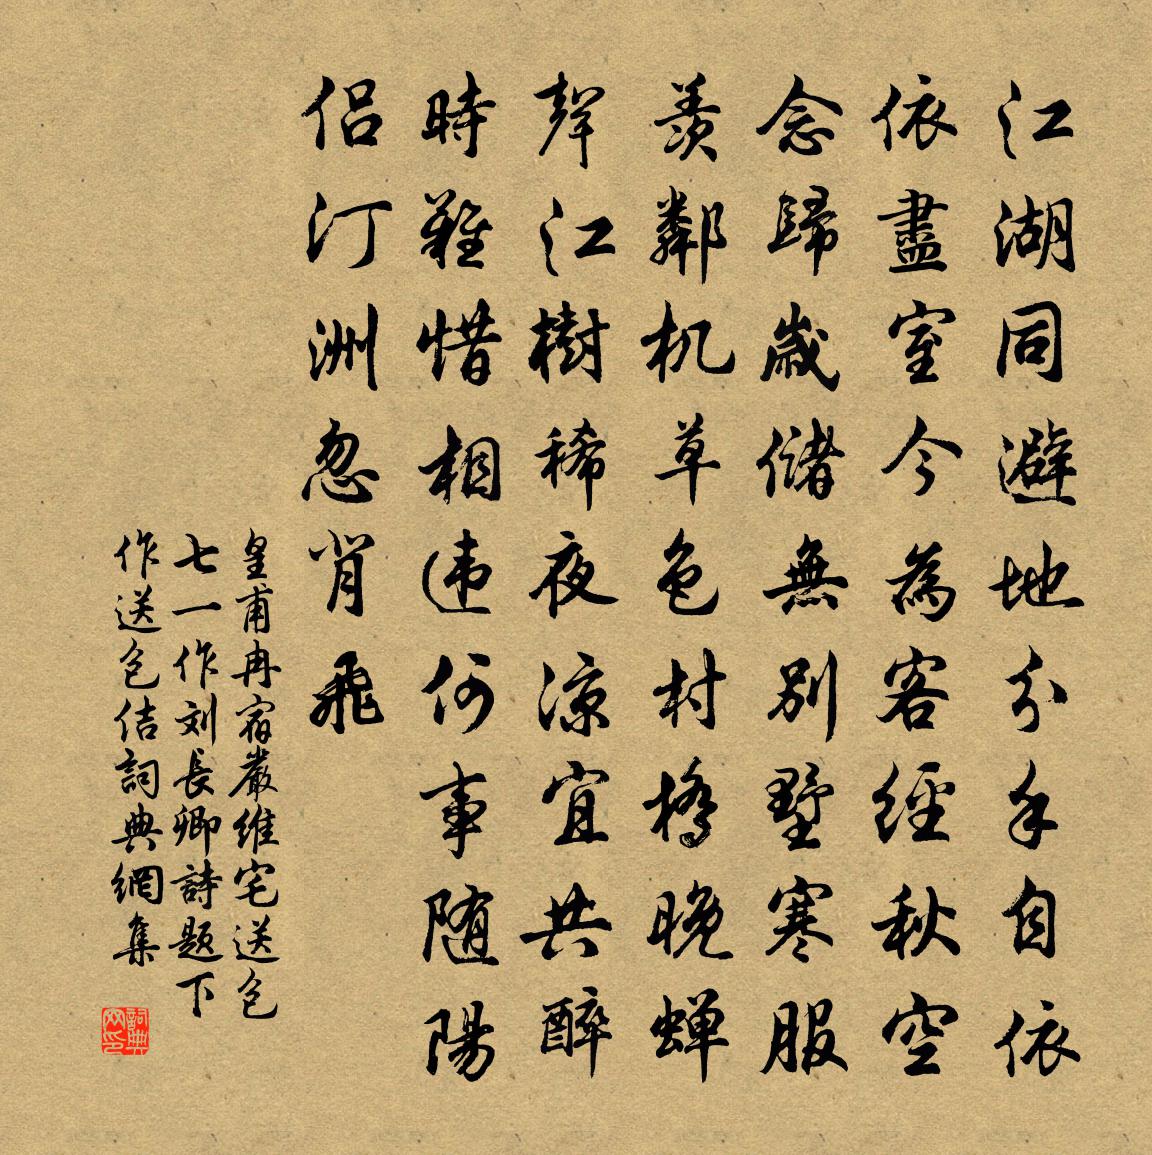 江湖同避地分手自依
依盡室今為客經秋空
念歸歲儲無別墅寒服
羨鄰机草色村橋晚蟬
聲江樹稀夜涼宜共醉
時難惜相違何事随陽
侣汀洲忽背飛
皇甫冉宿嚴維宅送包
七一作刘長卿詩题下
作送包佶詞典網集
詞典网印